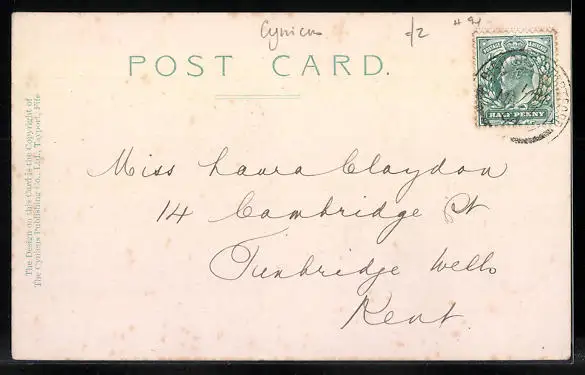 Cynicus
POST CARD.
POSTAGE & REVENUE
HALF PENNY
Miss Laura Claydon
14 Cambridge St
Tunbridge Wells
Kent.
The Design on this Card is the Copyright of
The Cynicus Publishing Co., Ltd., Tayport, Fife